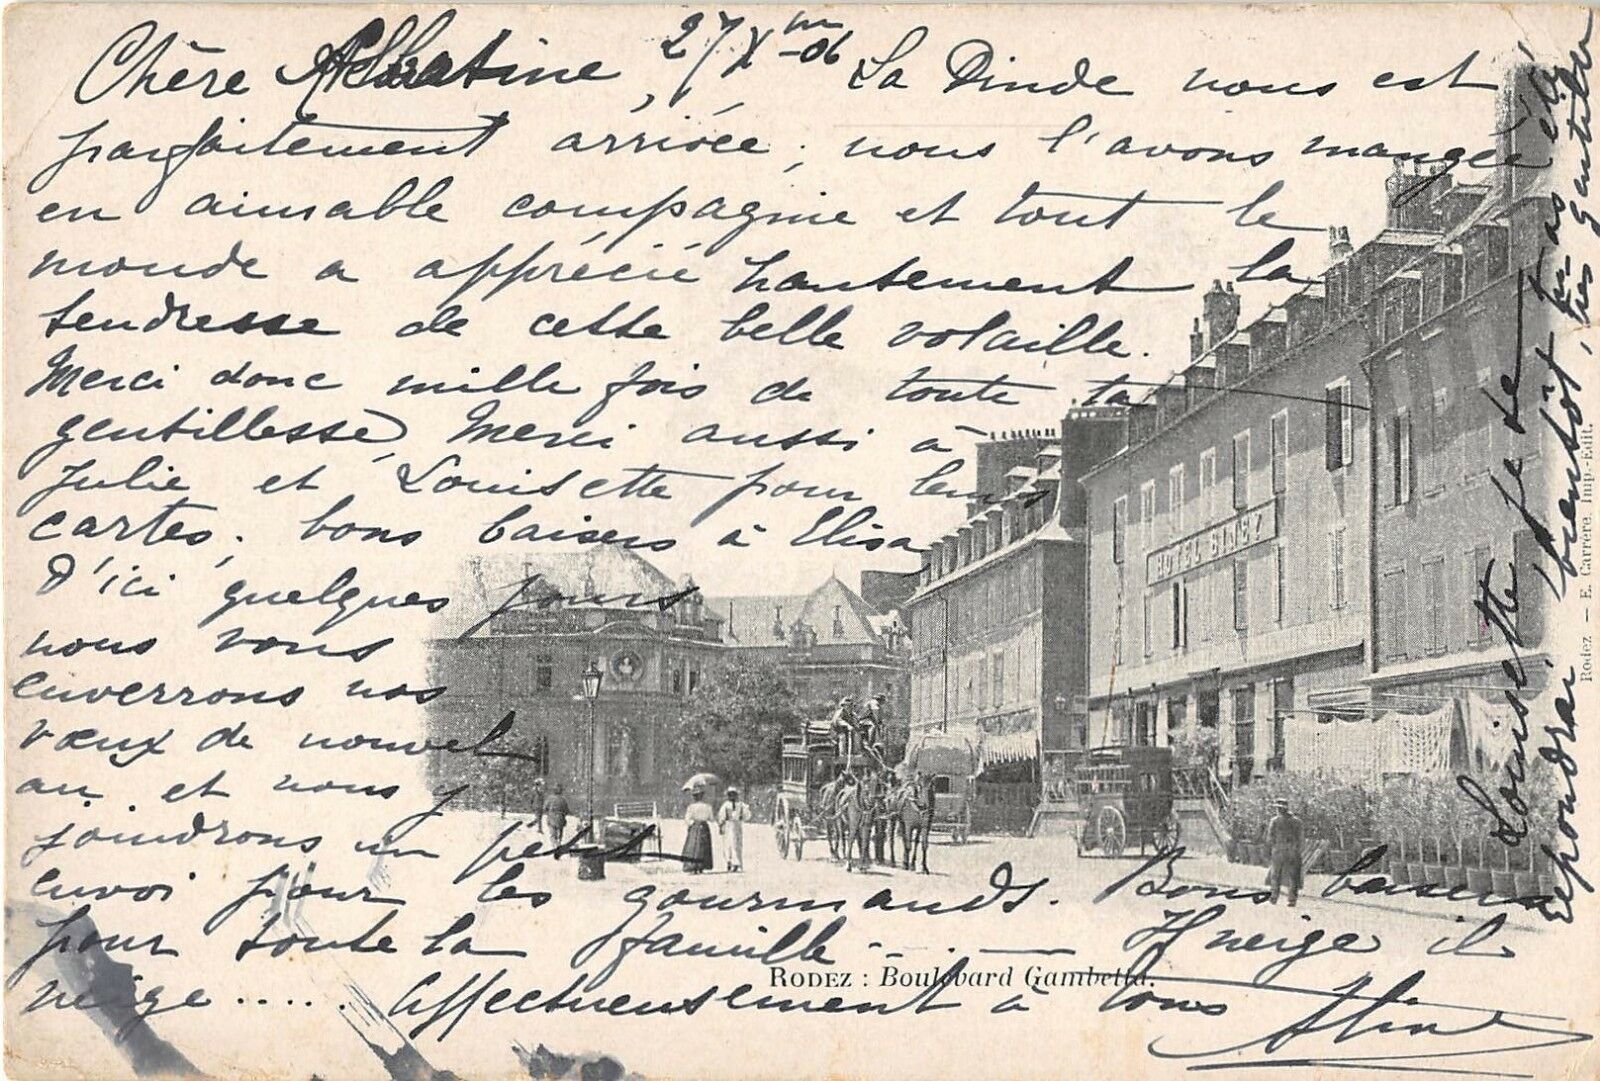 Chère 27 Xm-06 La Dinde nous est
parfaitement arrivée ; nous l'avons mangée
en aimable compagnie et tout le
monde a apprécié hautement la
tendresse de cette belle volaille.
Merci donc mille fois de toute ta
gentillesse, Merci aussi à
Julie et Louisette pour leurs
cartes ; bons baisers à Elisa
D'ici quelques jours
nous vous
enverrons nos
vœux de nouvel
an et nous y
joindrons un petit
envoi pour les gourmands. Bons baisers
pour toute la famille - . — Il neige il
neige ..... Affectueusement à tous
HOTEL BINEY
RODEZ : Boulevard Gambetta.
Rodez — E. Carrère, Imp.-Edit.
Louisette je te
répondrai bientôt, tu as été
très gentille